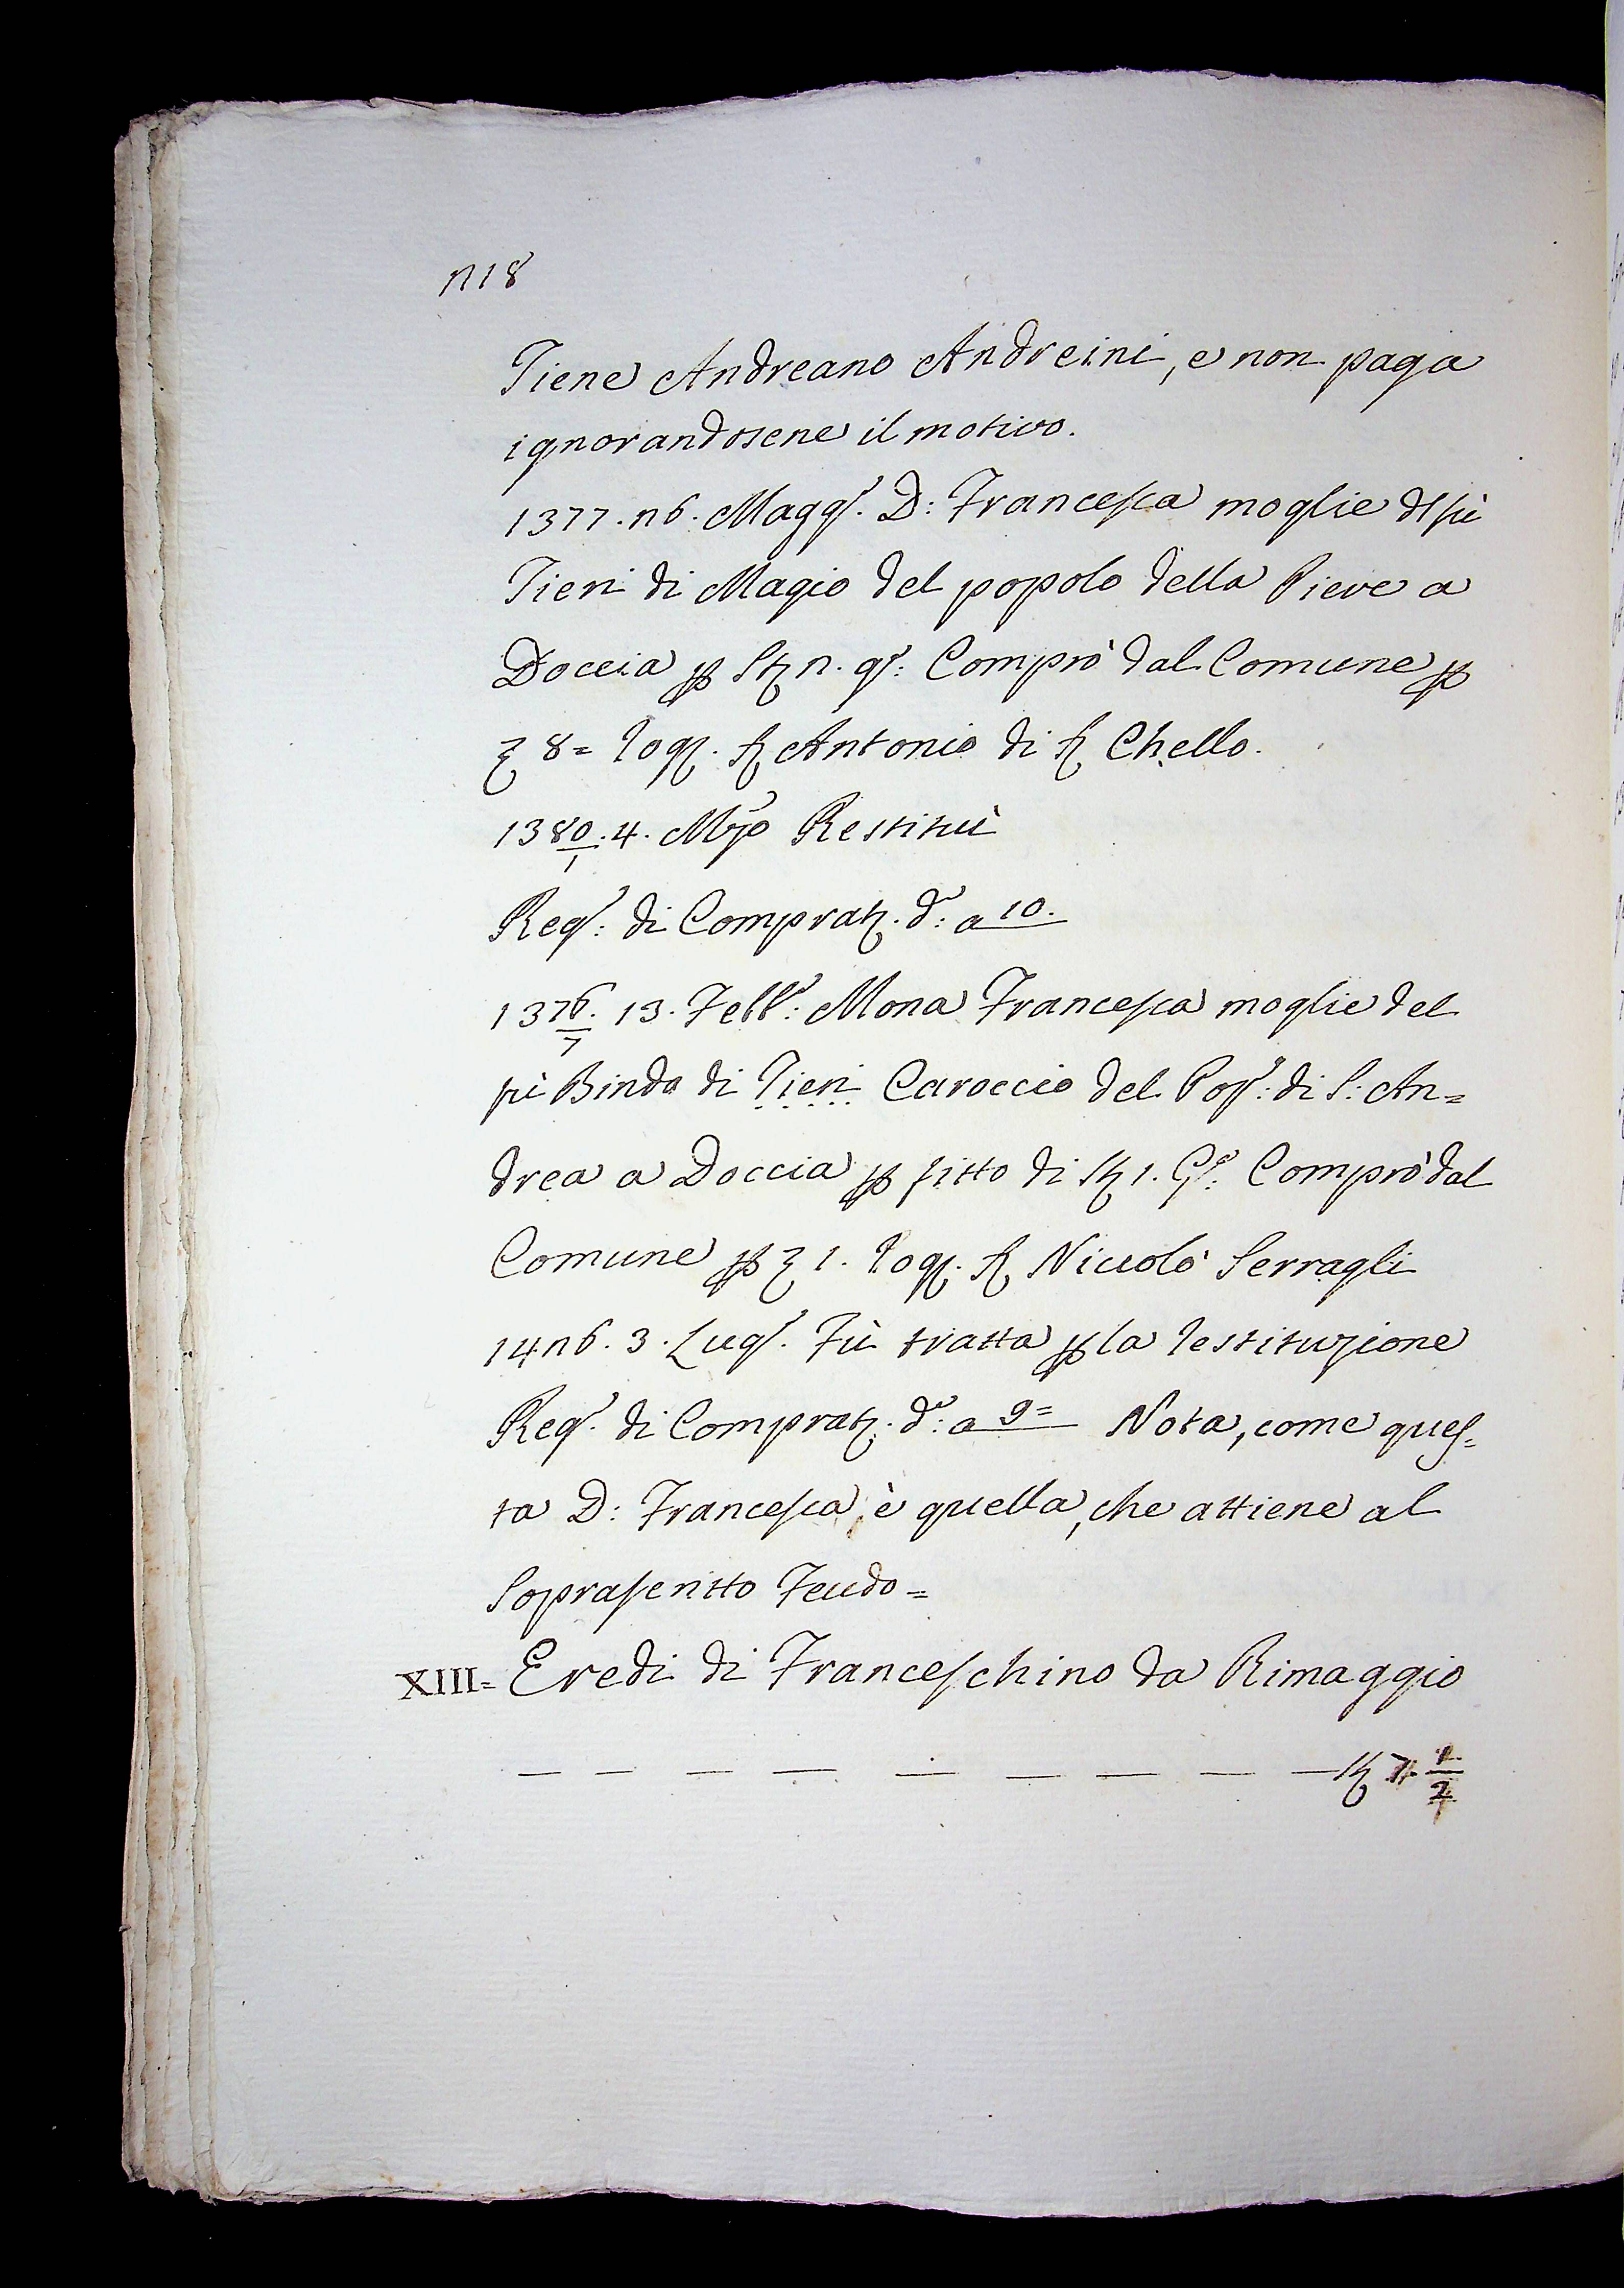 218
Tiene Andreano Andreini, e non paga
ignorandosene il motivo.
1377. 26. Magg.º D: Francesca moglie d fù
Tieri di Magio del popolo della Pieve a
Doccia p St. 2. g.º: Comprò dal Comune p
8= Rog. S. Antonio di S. Chello.
1380/1. 4. Mzo Restituì
Reg.º: di Comprat. d.º: a 10.
1376/7. 13. Febb.º: Mona Francesca moglie del
fù Bindo di Tieri Caroccio del Pop.º: di S: An=
drea a Doccia p fitto di St. 1. G.º: Comprò dal
Comune p 1. Rog. S. Niccolò Serragli
1426. 3. Lug.º. Fù tratta p la restituzione
Reg.º. di Comprat. d.º: a 9= Nota, come ques=
ta D: Francesca, è quella, che attiene al
Soprascritto Feudo=
XIII= Eredi di Franceschino da Rimaggio
— — — — — — — — — St. 7 1/2